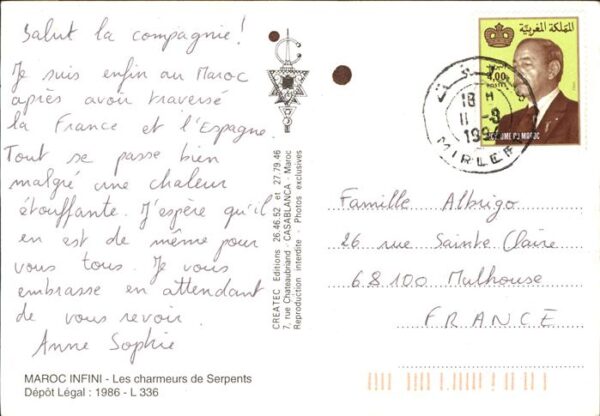 Salut la compagnie !
Je suis enfin au Maroc
après avoir traversé
la France et l'Espagne.
Tout se passe bien
malgré une chaleur
étouffante. J'espère qu'il
en est de même pour
vous tous. Je vous
embrasse en attendant
de vous revoir.
Anne Sophie
MAROC INFINI - Les charmeurs de Serpents
Dépôt Légal : 1986 - L 336
CREATEC Editions 26.46.52 et 27.79.46
7, rue Chateaubriand - CASABLANCA - Maroc
Reproduction interdite - Photos exclusives
المملكة المغربية
18 H
11 -8
MIRLEF
ROYAUME DU MAROC
Famille Albrigo
26 rue Sainte Claire
68100 Mulhouse
FRANCE